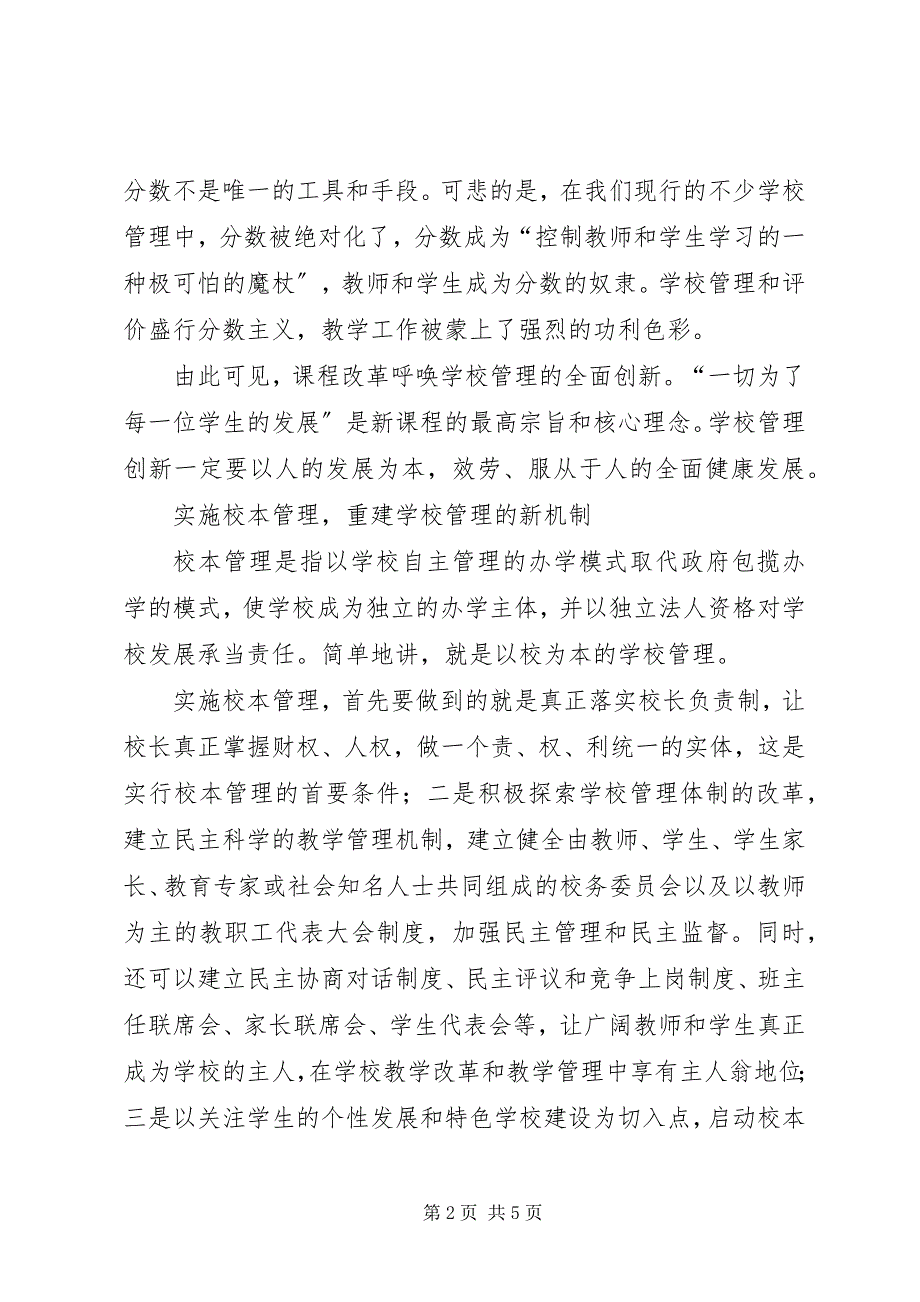 分数不是唯一的工具和手段。可悲的是，在我们现行的不少学校
管理中，分数被绝对化了，分数成为“控制教师和学生学习的一
种极可怕的魔杖〞，教师和学生成为分数的奴隶。学校管理和评
价盛行分数主义，教学工作被蒙上了强烈的功利色彩。
由此可见，课程改革呼唤学校管理的全面创新。“一切为了
每一位学生的发展〞是新课程的最高宗旨和核心理念。学校管理
创新一定要以人的发展为本，效劳、服从于人的全面健康发展。
实施校本管理，重建学校管理的新机制
校本管理是指以学校自主管理的办学模式取代政府包揽办
学的模式，使学校成为独立的办学主体，并以独立法人资格对学
校发展承当责任。简单地讲，就是以校为本的学校管理。
实施校本管理，首先要做到的就是真正落实校长负责制，让
校长真正掌握财权、人权，做一个责、权、利统一的实体，这是
实行校本管理的首要条件；二是积极探索学校管理体制的改革，
建立民主科学的教学管理机制，建立健全由教师、学生、学生家
长、教育专家或社会知名人士共同组成的校务委员会以及以教师
为主的教职工代表大会制度，加强民主管理和民主监督。同时，
还可以建立民主协商对话制度、民主评议和竞争上岗制度、班主
任联席会、家长联席会、学生代表会等，让广阔教师和学生真正
成为学校的主人，在学校教学改革和教学管理中享有主人翁地位；
三是以关注学生的个性发展和特色学校建设为切入点，启动校本
第 2 页 共 5 页